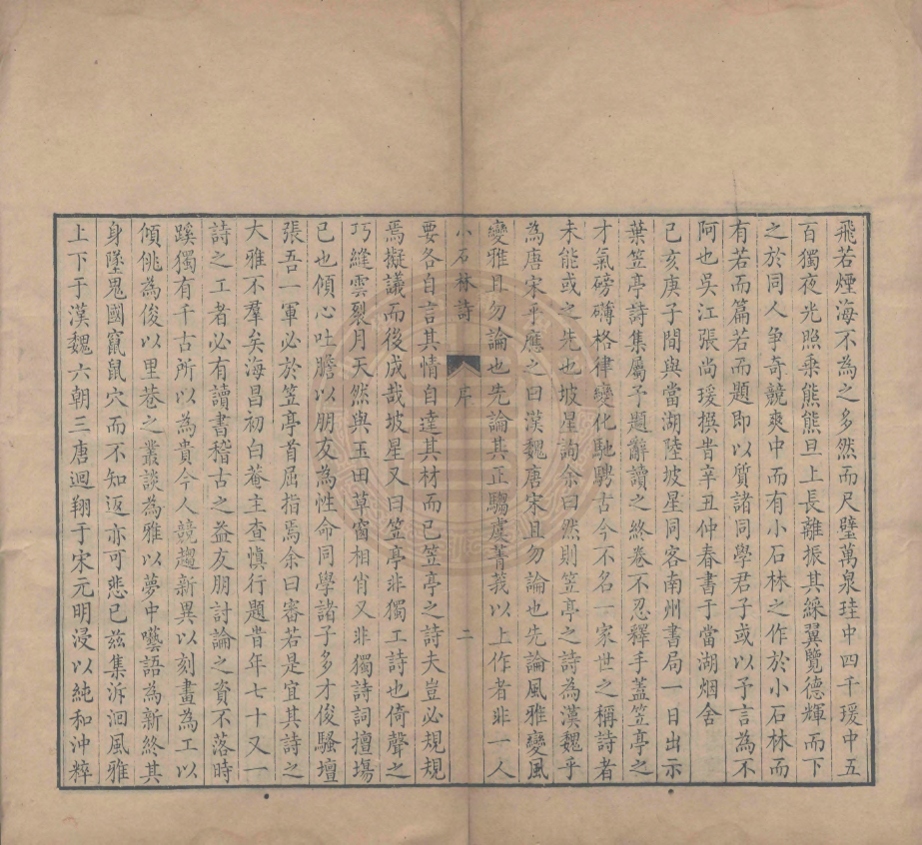 飛若煙海不為之多然而尺璧萬泉珪中四千瑗中五
百獨夜光照乘熊熊旦上長離振其綵翼覽德輝而下
之於同人爭奇競爽中而有小石林之作於小石林而
有若而篇若而題即以質諸同學君子或以予言為不
阿也吳江張尚瑗撰昔辛丑仲春書于當湖烟舍
己亥庚子間與當湖陸坡星同客南州書局一日出示
葉笠亭詩集屬予題辭讀之終卷不忍釋手蓋笠亭之
才氣磅礴格律變化馳騁古今不名一家世之稱詩者
未能或之先也坡星詢余曰然則笠亭之詩為漢魏乎
為唐宋乎應之曰漢魏唐宋且勿論也先論風雅變風
變雅且勿論也先論其正騶虞菁莪以上作者非一人
小石林詩 序 二
要各自言其情自達其材而已笠亭之詩夫豈必規規
焉擬議而後成哉坡星又曰笠亭非獨工詩也倚聲之
巧縫雲裂月天然與玉田草窗相肖又非獨詩詞擅塲
已也傾心吐膽以朋友為性命同學諸子多才俊騷壇
張吾一軍必於笠亭首屈指焉余曰審若是宜其詩之
大雅不羣矣海昌初白菴主查愼行題昔年七十又一
詩之工者必有讀書稽古之益友朋討論之資不落時
蹊獨有千古所以為貴今人競趨新異以刻畫為工以
傾佻為俊以里巷之叢談為雅以夢中囈語為新終其
身墜鬼國竄鼠穴而不知返亦可悲已兹集泝洄風雅
上下于漢魏六朝三唐迴翔于宋元明浸以純和沖粹